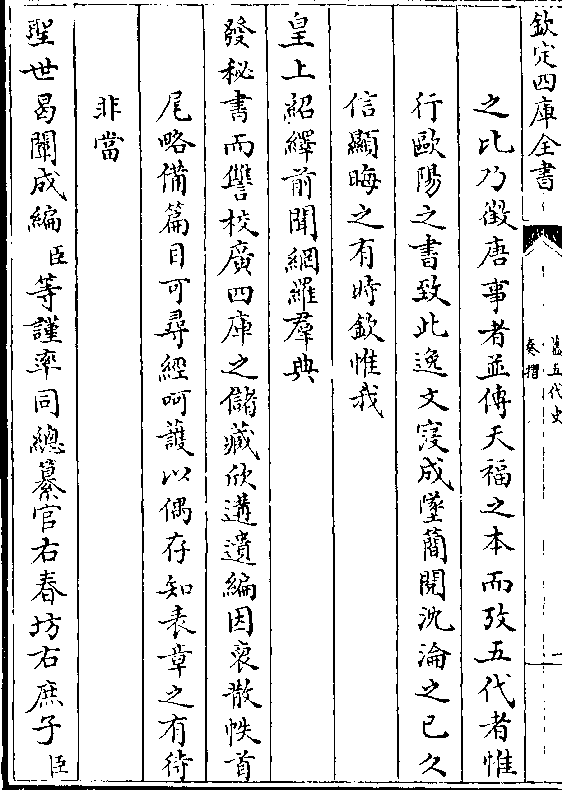 欽定四庫全書
舊五代史
奏摺
一
之比乃徵唐事者並傳天福之本而攷五代者惟
行歐陽之書致此逸文寖成墜簡閱沈淪之已久
信顯晦之有時欽惟我
皇上紹繹前聞網羅羣典
發秘書而讐校廣四庫之儲藏欣遘遺編因裒散帙首
尾略備篇目可尋經呵護以偶存知表章之有待
非當
聖世曷闡成編臣等謹率同總纂官右春坊右庶子臣